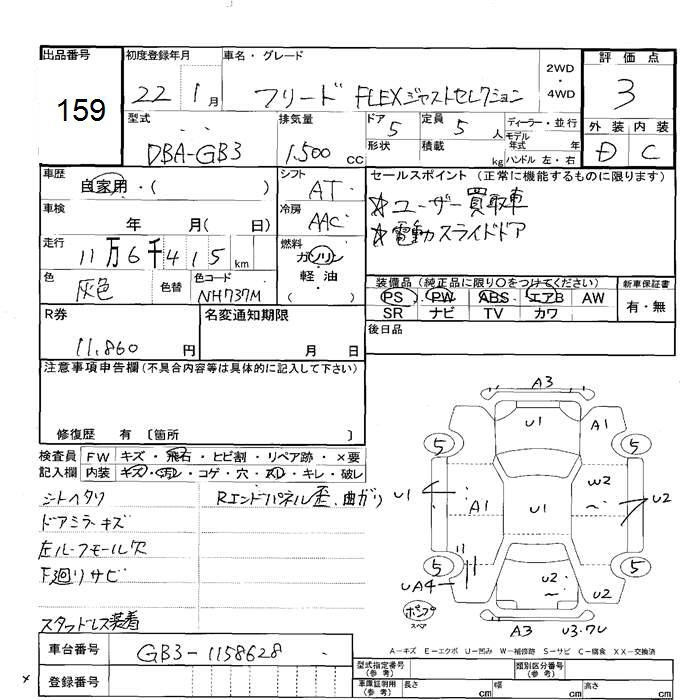 出品番号 初度登録年月 車名・グレード 2WD・4WD 評価点
159 22 1月 フリード FLEXジャストセレクション 3
型式 排気量 ドア 5 定員 5人 ディーラー・並行 外装 内装
DBA-GB3 1,500cc 形状 積載 kg モデル年式 年 D C
ハンドル 左・右
車歴 シフト セールスポイント(正常に機能するものに限ります)
自家用・( ) AT
☆ユーザー買取車
車検 冷房
年 月( 日) AAC
☆電動スライドドア
走行 燃料
11万6千415km ガソリン
軽油
( )
色 色替 色コード
灰色 NH737M
装備品(純正品に限り○をつけてください) 新車保証書
PS PW ABS エアB AW 有・無
SR ナビ TV カワ
R券 名変通知期限 後日品
11,860円 月 日
注意事項申告欄(不具合内容等は具体的に記入して下さい)
修復歴 有 〔箇所 〕
検査員 FW キズ・飛石・ヒビ割・リペア跡・×要
記入欄 内装 キズ・汚レ・コゲ・穴・スレ・キレ・破レ
シートヘタリ Rエンドパネル歪、曲がり
ドアミラーキズ
左ルーフモール欠
下廻りサビ
スタッドレス装着
A3
U1 A1
5 5
U1 A1 U1 W2 U2
5 5
UA4 U2 U2
スペア
A3 U3.7U
A-キズ E-エクボ U-凹み W-補修跡 S-サビ C-腐食 XX-交換済
車台番号 GB3-1158628
型式指定番号(参考) 類別区分番号(参考)
登録番号
車庫証明用(参考) 長さ cm 幅 cm 高さ cm